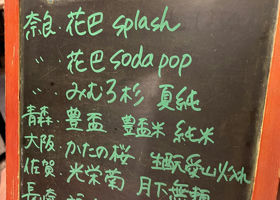 奈良・花巴 splash
〃 花巴 soda pop
〃 みむろ杉 夏純
青森・豊盃 豊盃米 純米
大阪・かたの桜 生酛愛山火入れ
佐賀・米栄菊 月下無類
長崎